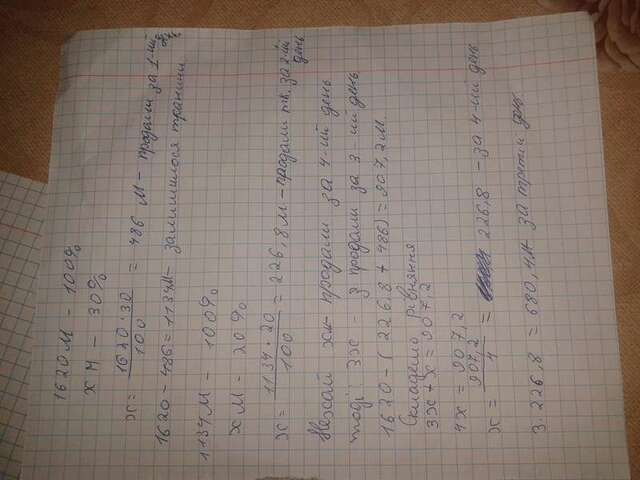 1620 м - 100%
х м - 30%
х = 1620·30 / 100 = 486 м - продали за 1-ий
1620 - 486 = 1134 м - залишилося тканини
1134 м - 100%
х м - 20%
х = 1134·20 / 100 = 226,8 м - продали тк. за 2-ий день
Нехай х м - продали за 4-ий день
тоді 3х - продали за 3-ий день
1620 - (226,8 + 486) = 907,2 м
Складемо рівняння
3х + х = 907,2
4х = 907,2
х = 907,2 / 4 = 226,8 - за 4-ий день
3·226,8 = 680,4 м за третій день